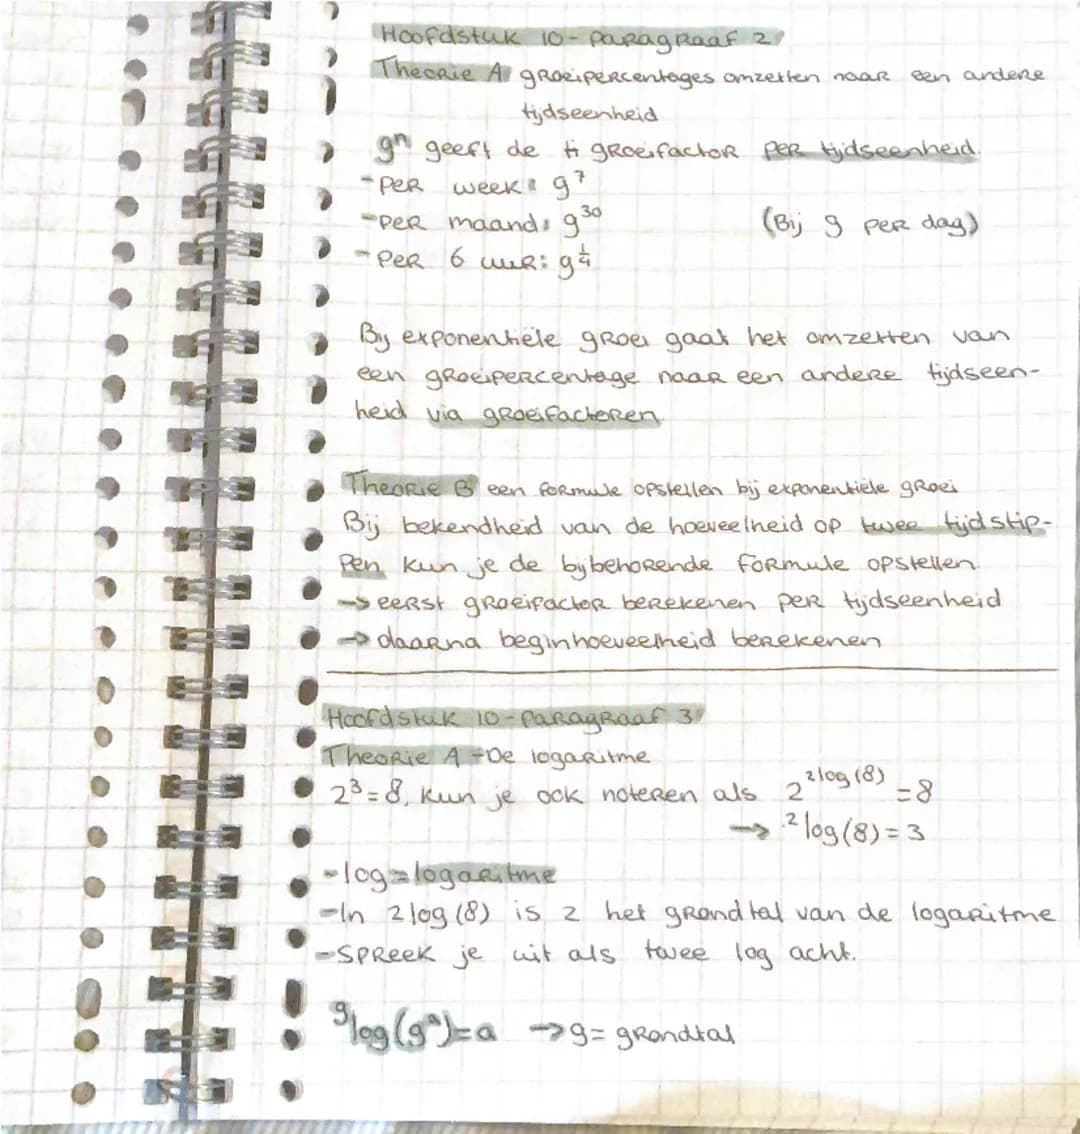 Hoofdstuk 10 - paragraaf 2
Theorie A groeipercentages omzetten naar een andere
tijdseenheid
gⁿ geeft de groeifactor per tijdseenheid
- per week: g⁷
- per maand: g³⁰ (Bij g per dag)
- per 6 uur: g^¼
By exponentiële groei gaat het omzetten van
een groeipercentage naar een andere tijdseen-
heid via groeifactoren.
Theorie B een formule opstellen bij exponentiële groei
Bij bekendheid van de hoeveelheid op twee tijdstip-
pen kun je de bijbehorende formule opstellen
→ eerst groeifactor berekenen per tijdseenheid
→ daarna beginhoeveelheid berekenen
Hoofdstuk 10 - paragraaf 3
Theorie A - De logaritme
2³ = 8, kun je ook noteren als 2^(²log(8)) = 8
→ ²log(8) = 3
- log = logaritme
- In 2log(8) is 2 het grondtal van de logaritme
- Spreek je uit als twee log acht.
ᵍlog(gᵃ) = a → g = grondtal